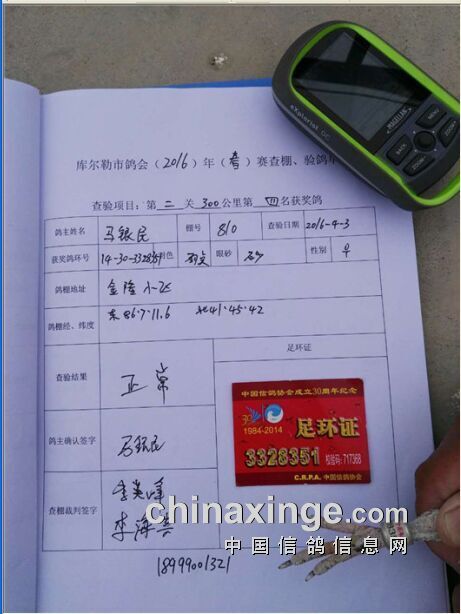 MAGELLAN
eXplorist GC
BACK
ZOOM-
ZOOM+
库尔勒市鸽会（2016）年（春）赛查棚、验鸽单
查验项目：第 二 关 300 公里第 四 名获奖鸽
鸽主姓名 马银民 棚号 810 查验日期 2016-4-3
获奖鸽环号 14-30-3328351 羽色 眼砂 性别 ♀
鸽棚地址 金隆小区
鸽棚经、纬度 东86·7·11.6 北41·45·42
查验结果 正常 足环证
中国信鸽协会成立30周年纪念
1984-2014 足环证
3328351 校验码:717368
C.R.P.A. 中国信鸽协会
鸽主确认签字 马银民
查棚裁判签字
18999001321
chinaxinge.com
中国信鸽信息网